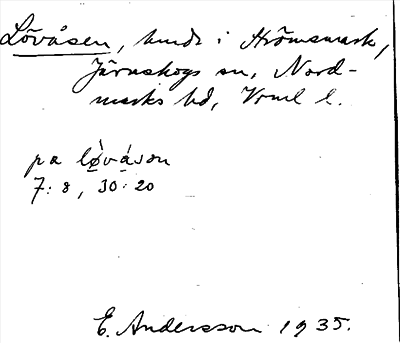 Lövåsen, hmds i Strömsmark,
Järnskogs sn, Nord-
marks hd, Vrml l.
på lø̀vǻsən
7:8, 30:20
E. Andersson 1935.